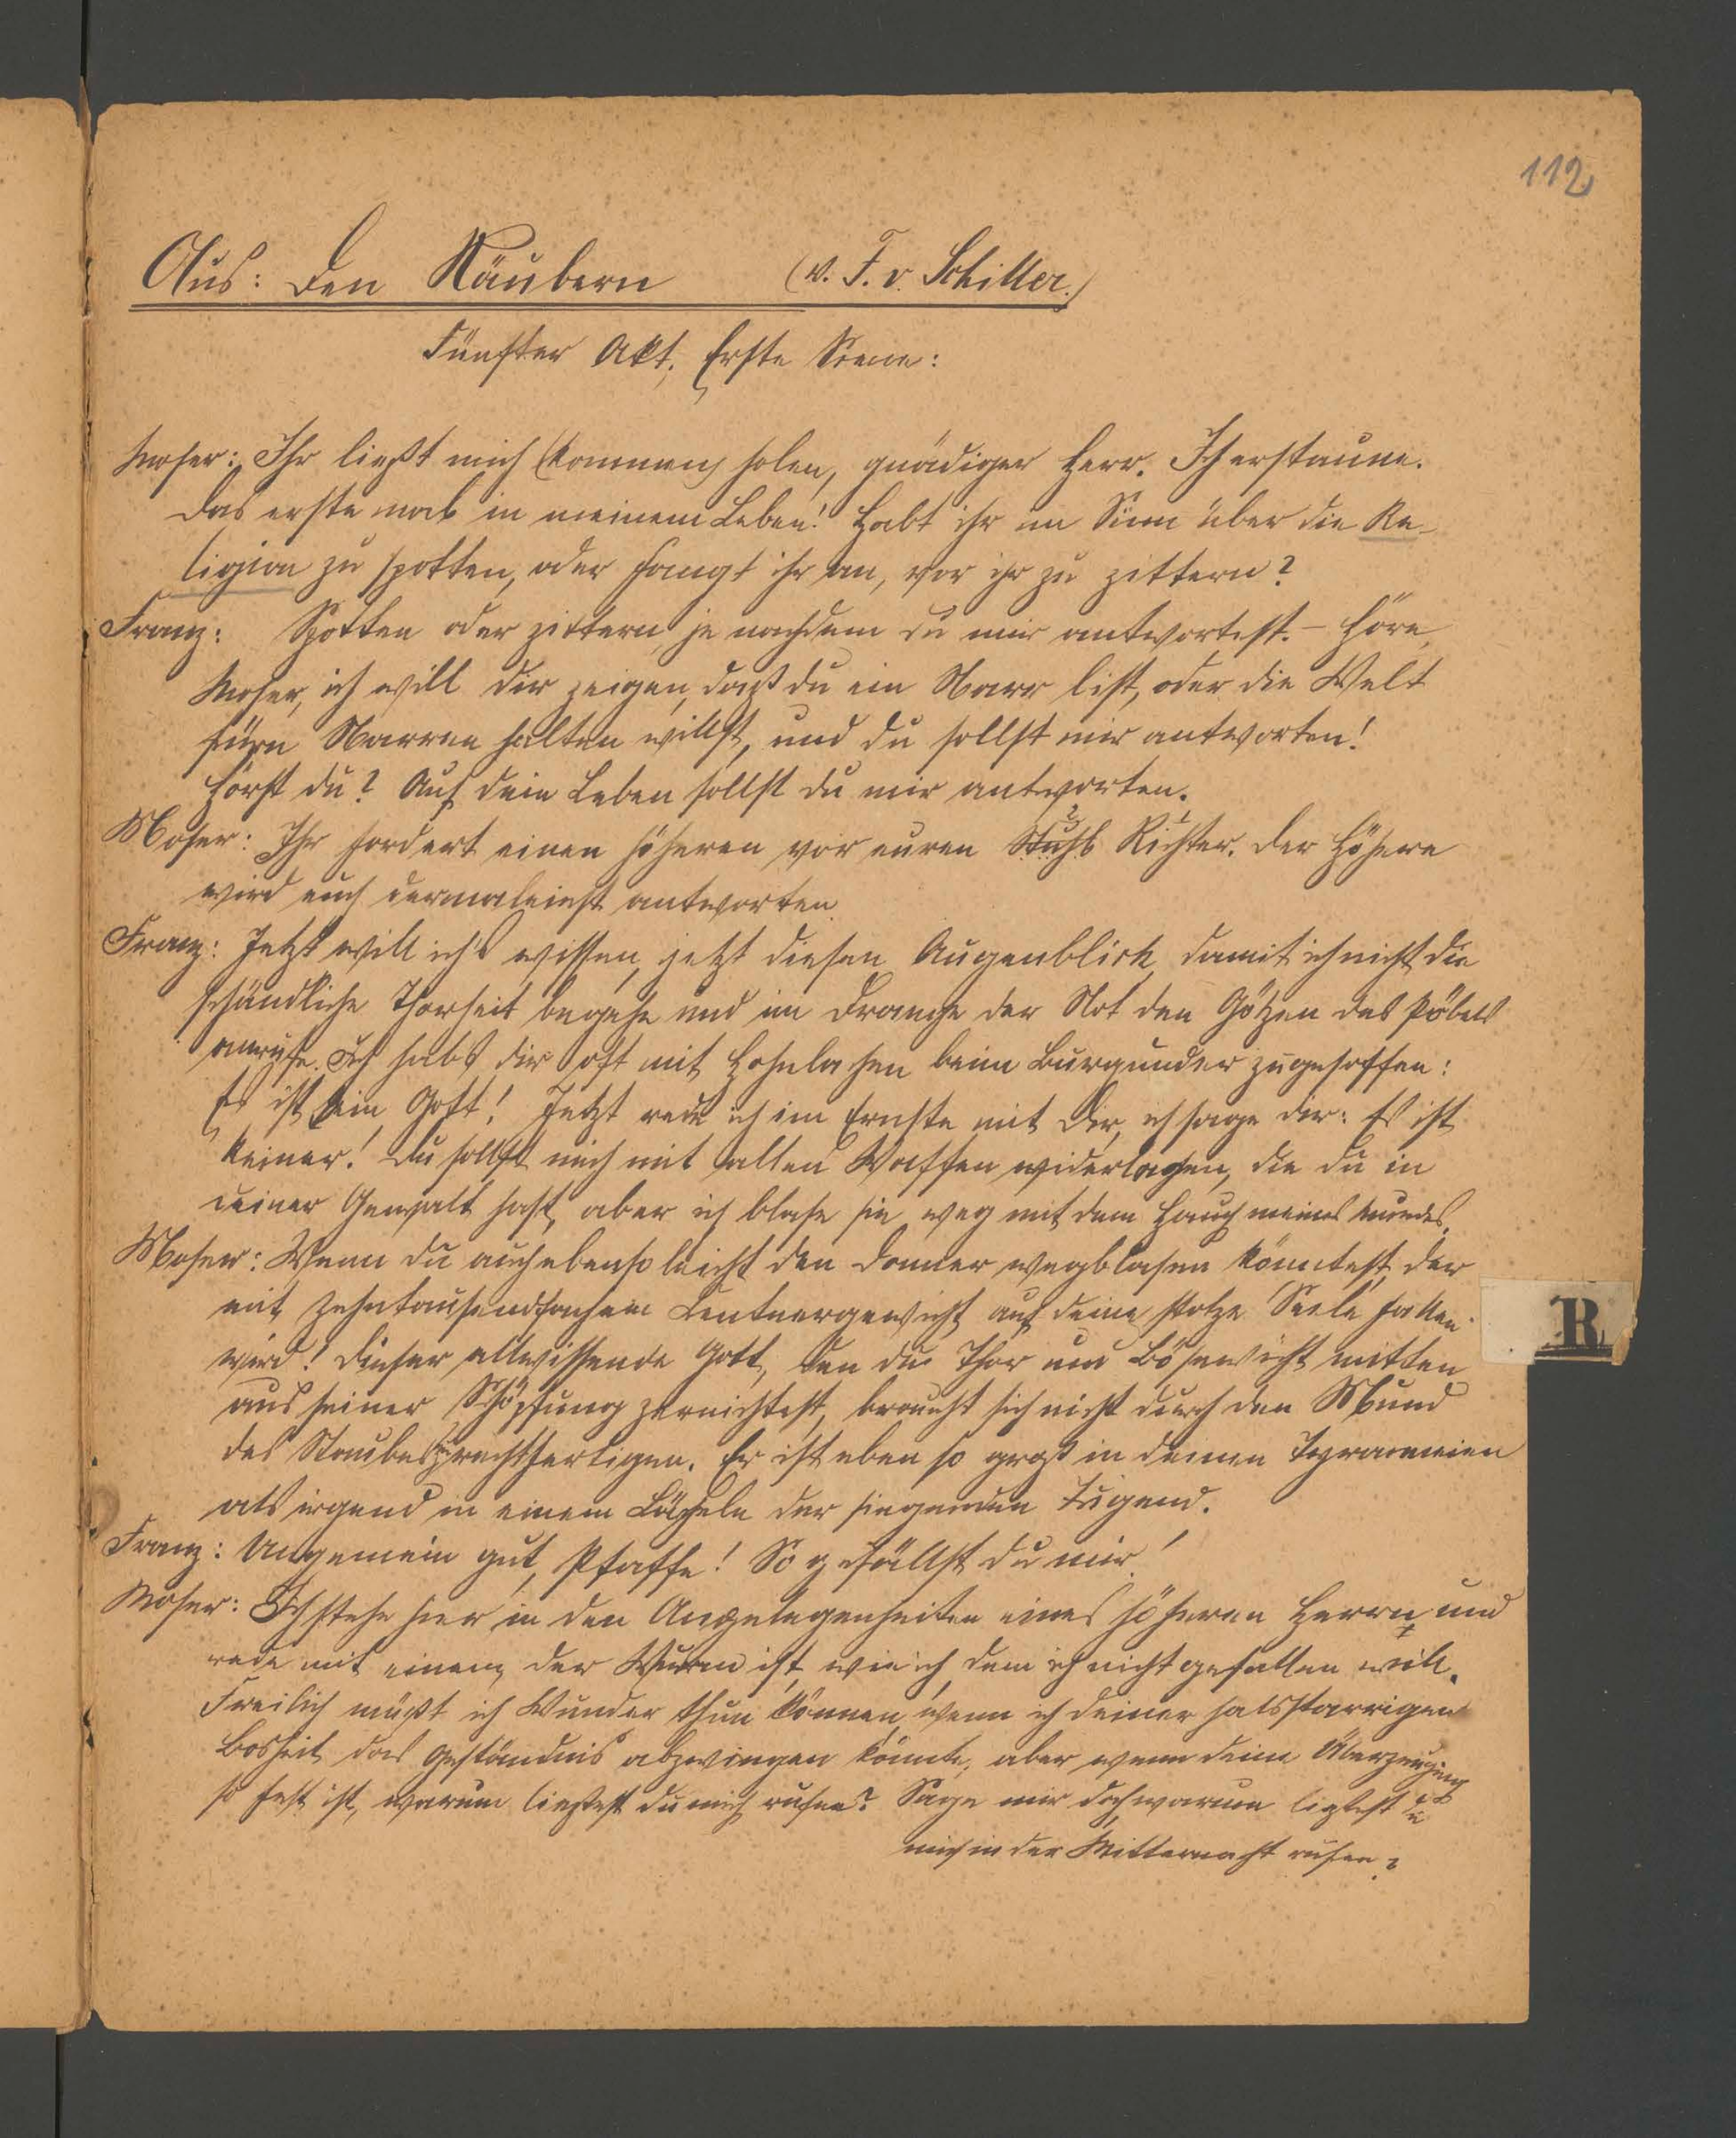 112
Aus: Den Räubern (v. F. v. Schiller.)
Fünfter Akt. Erste Scene:
Moser: Ihr ließt mich (kommen) holen, gnädiger Herr. Ich erstaune.
Das erste mal in meinem Leben! Habt ihr im Sinn über die Re-
ligion zu spotten, oder fangt ihr an, vor ihr zu zittern?
Franz: Spotten oder zittern, je nachdem du mir antwortest. – Höre,
Moser, ich will dir zeigen, daß du ein Narr bist, oder die Welt
fürn Narren halten willst, und du sollst mir antworten!
Hörst du? Auf dein Leben sollst du mir antworten.
Moser: Ihr fordert einen höheren vor euren Richter. Der Höhere
wird euch dermaleinst antworten.
Franz: Jetzt will ich's wissen, jetzt diesen Augenblick, damit ich nicht die
schändliche Thorheit begehe und im Drange der Not den Götzen des Pöbels
anrufe. Ich habs dir oft mit Hohnlachen beim Burgunder zugesoffen:
Es ist kein Gott! Jetzt rede ich im Ernste mit Dir, ich sage dir: Es ist
keiner! Du sollst mich mit allen Waffen widerlegen, die du in
deiner Gewalt hast, aber ich blase sie weg mit dem Hauch meines Mundes.
Moser: Wenn du auch ebenso leicht den Donner wegblasen könntest, der
mit zehntausendfachem Centnergewicht auf deine stolze Seele fallen
wird! Dieser allwissende Gott, den du Thor und Bösewicht mitten
aus seiner Schöpfung zernichtest, braucht sich nicht durch den Mund
des Staubes zu rechtfertigen. Er ist eben so groß in deinen Tyranneien
als irgend in einem Lächeln der siegenden Tugend.
Franz: Ungemein gut, Pfaffe! So gefällst du mir!
Moser: Ich stehe hier in den Angelegenheiten eines höheren Herrn und
rede mit einem, der Wurm ist, wie ich, dem ich nicht gefallen will.
Freilich müßt ich Wunder thun können, wenn ich deiner halsstarrigen
Bosheit das Geständnis abzwingen könnte, aber wenn deine Überzeugung
so fest ist, warum ließest du mich rufen? Sage mir doch warum ließest du
mich in der Mitternacht rufen?
R